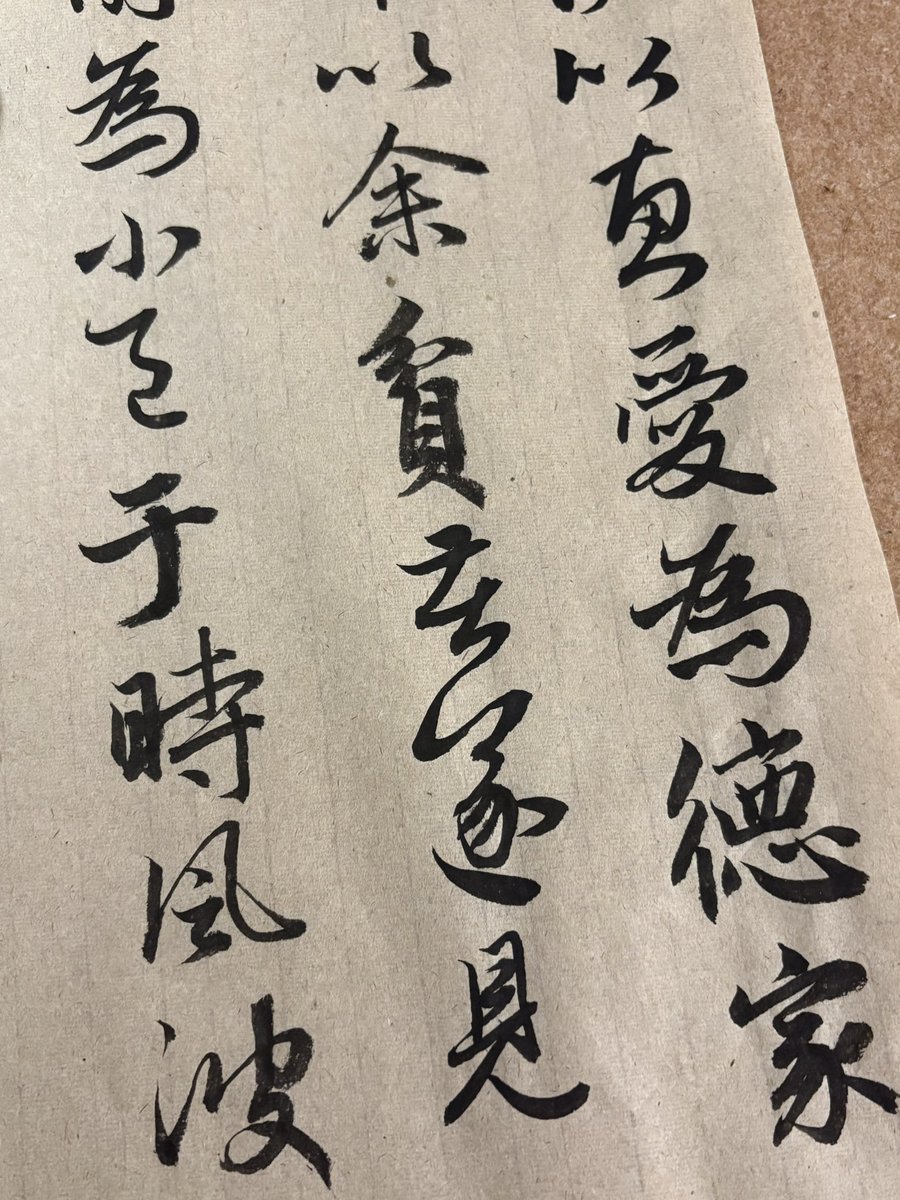 以惠愛為德家
以余貧苦遂見
為小邑于時風波